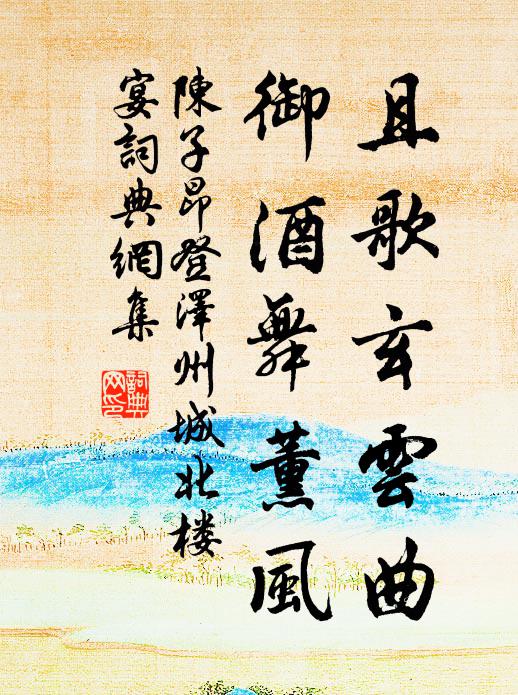 且歌玄雲曲
御酒舞薰風
陳子昂登澤州城北楼
宴詞典網集
詞典网印